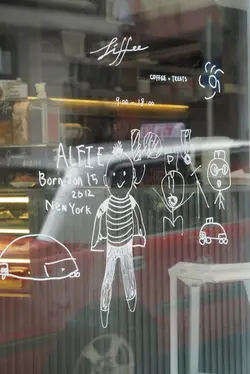 COFFEE + TREATS
9:00 - 18:00
ALFIE
Born Jan 15
2012
New York